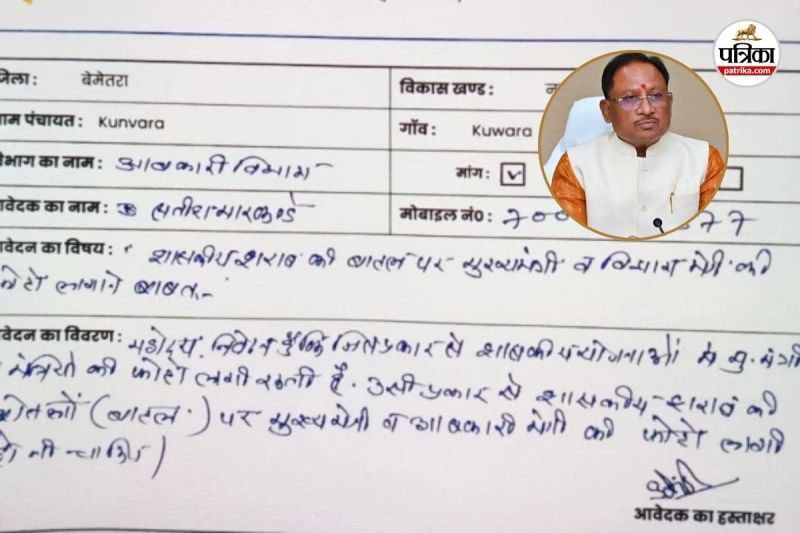 पत्रिका
patrika.com
जिला : बेमेतरा
विकास खण्ड :
ाम पंचायत : Kunvara
गाँव : Kuwara
वेभाग का नाम : आबकारी विभाग
मांग :
आवेदक का नाम : सतीश मारकण्डे
मोबाइल नं0 : 700 77
आवेदन का विषय : शासकीय शराब की बातल पर मुख्यमंत्री व विभाग मंत्री की
फोटो लगाने बाबत.-
आवेदन का विवरण : महोदय, निवेदन है कि जिस प्रकार से शासकीय योजनाओं में मु. मंत्री
व मंत्रियों की फोटो लगी रहती है. उसी प्रकार से शासकीय शराब की
(बातल) पर मुख्यमंत्री व आबकारी मंत्री की फोटो लगी
होनी चाहिए)
आवेदक का हस्ताक्षर